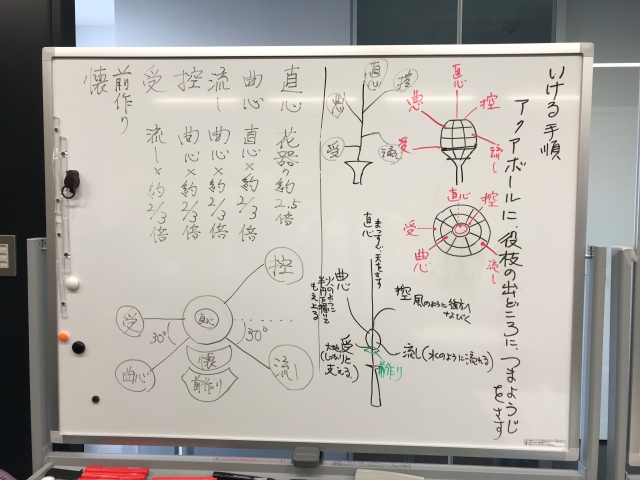 いける手順
アクアボールに、役枝の出どころに、つまようじ
をさす
直心
控
曲心
受
流し
直心
控
受
曲心
流し
直心
控
曲心
受
流し
直心
まっすぐ天をさす
曲心
火のように
半円を描いて
もえ上る
控
風のように後方へ
なびく
受
大地
しっかりと
支える)
流し(水のように流れる)
前作り
直心 花器の約2.5倍
曲心 直心×約2/3倍
流し 曲心×約2/3倍
控 曲心×約2/3倍
受 流し×約2/3倍
前作り
懐
控
受
直心
30°
30°
曲心
懐
前作り
流し